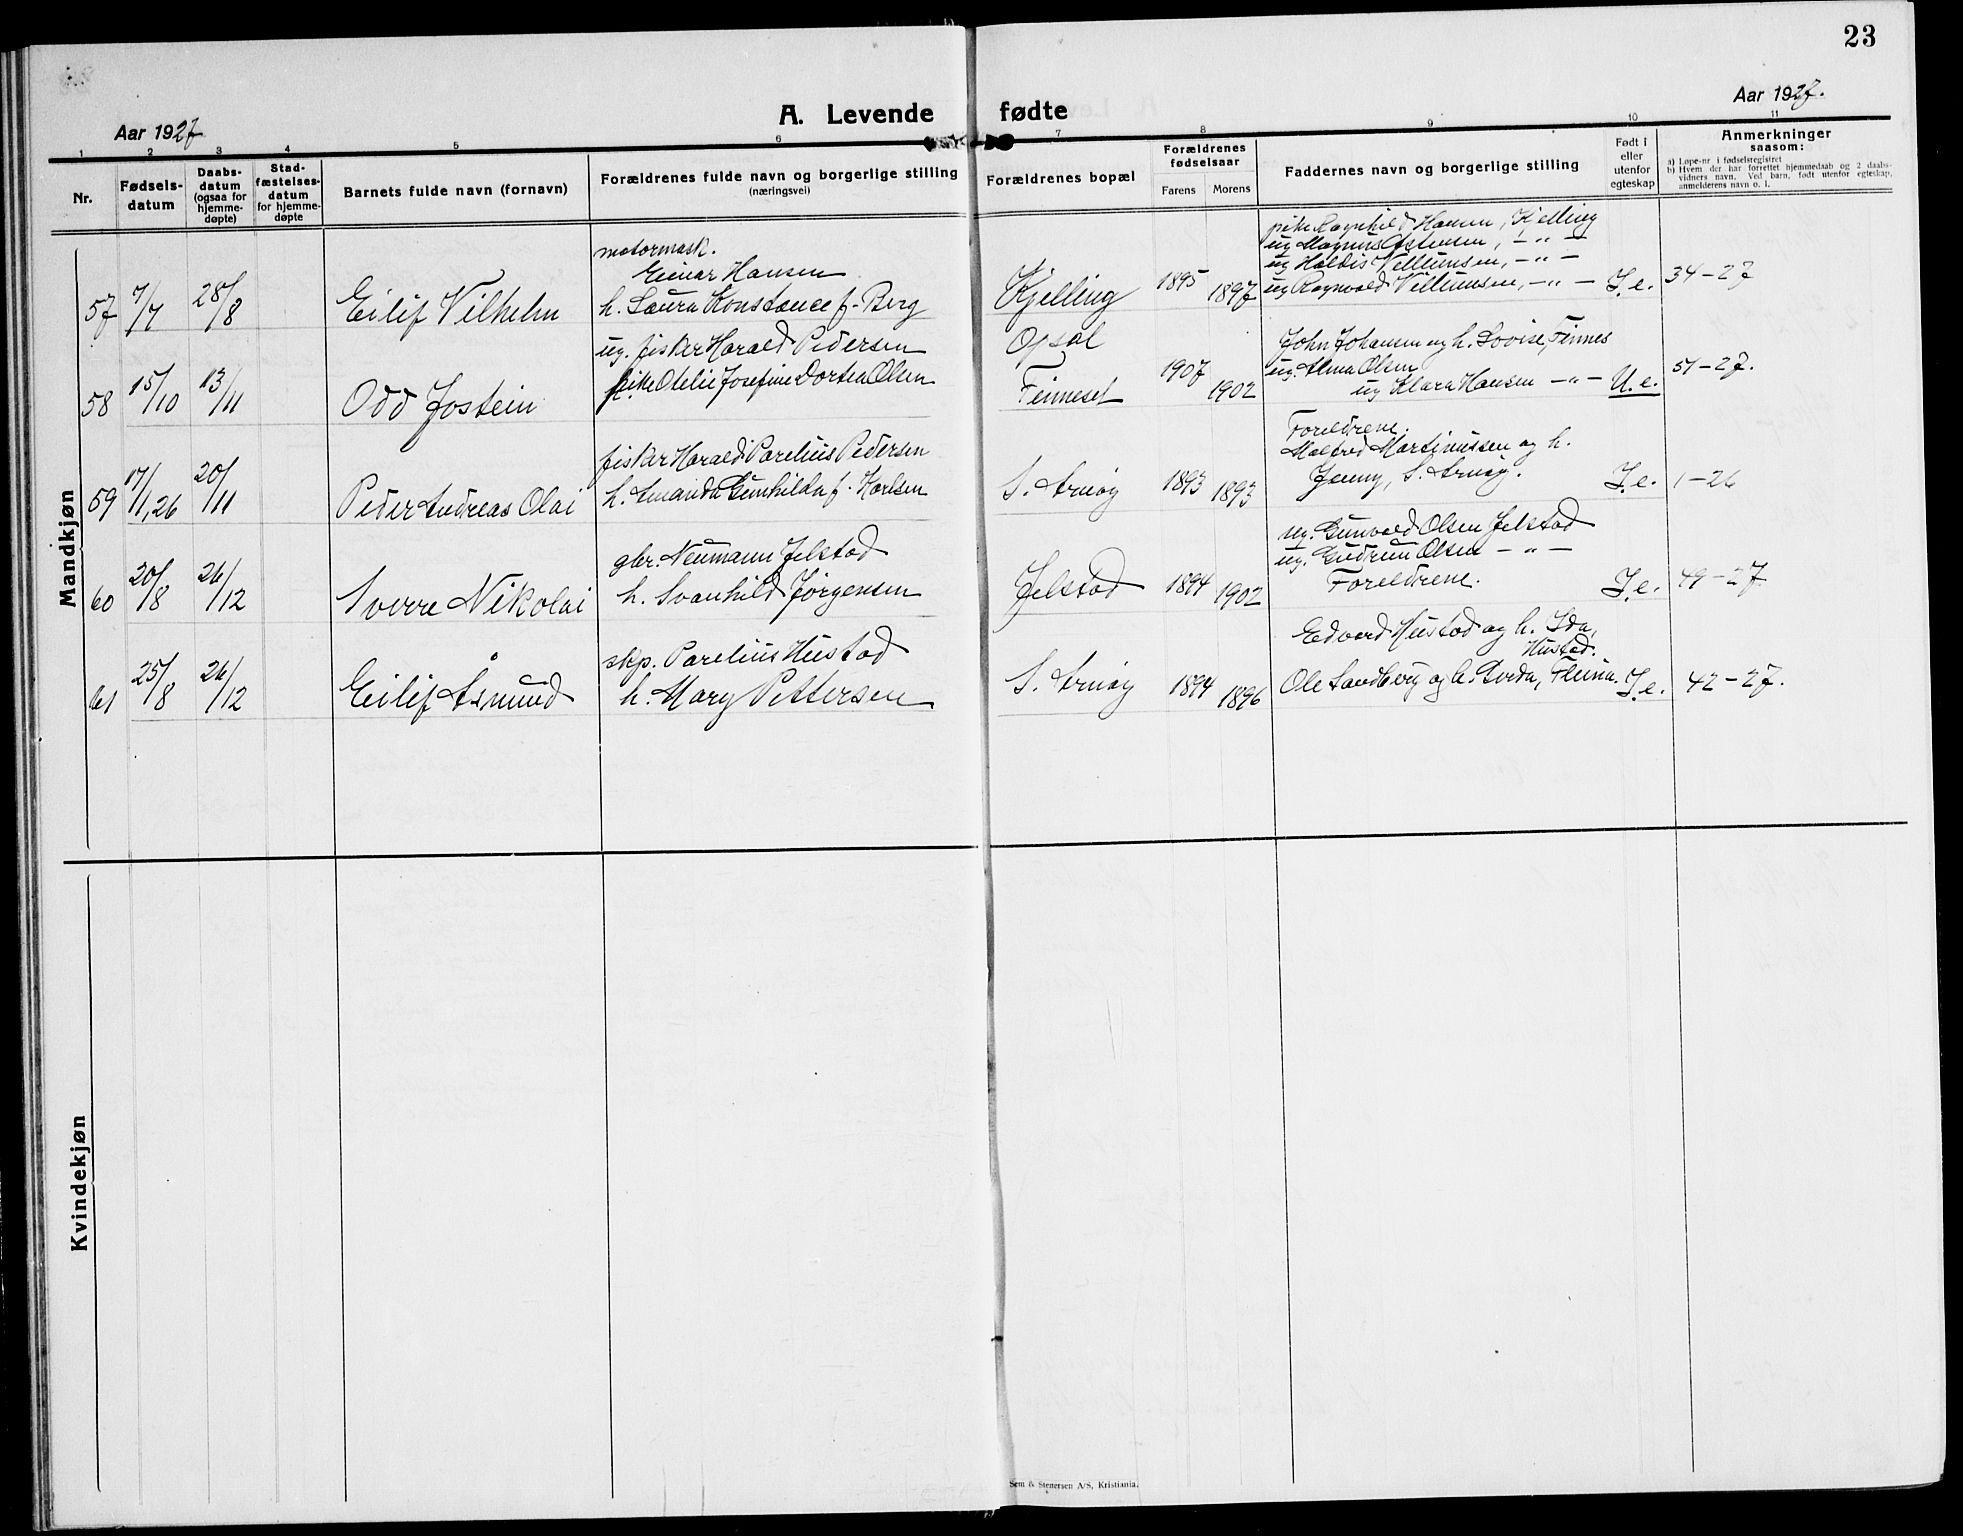 23
Aar 1927
A. Levende fødte
Aar 1927.
1 2 3 4 5 6 7 8 9 10 11
Nr.
Fødsels-
datum
Daabs-
datum
(ogsaa for
hjemme-
døpte)
Stad-
fæstelses-
datum
for hjemme-
døpte
Barnets fulde navn (fornavn)
Forældrenes fulde navn og borgerlige stilling
(næringsvei)
Forældrenes bopæl
Forældrenes
fødselsaar
Farens Morens
Faddernes navn og borgerlige stilling
Født i
eller
utenfor
egteskap
Anmerkninger
saasom:
a) Løpe-nr i fødselsregistret
b) Hvem der har forrettet hjemmedaab og 2 daabs-
vidners navn. Ved barn, født utenfor egteskap,
anmelderens navn o. l.
Mandkjøn
57 7/7 28/8 Eilif Vilhelm
motormask.
Einar Hansen
h. Laura Konstance f. Berg
Kjelling 1895 1897
pike Ragnhild Hansen, Kjelling
ug Magnus Østensen, - " -
ug Haldis Villumsen, - " -
ug Ragnvald Villumsen, - " -
I.e. 34-27
58 15/10 13/11 Odd Jostein
ug. fisker Harald Pedersen
pike Otelie Josefine Dortea Olsen
Opsal
Finneset 1907 1902
John Johansen og h. Lovise, Finnes
ug. Alma Olsen
ug Klara Hansen - " -
U.e. 51-27.
59 17/1,26 20/11 Peder Andreas Olai
fisker Harald Parelius Pedersen
h. Amanda Gunhilda f. Karlsen
S. Arnøy 1893 1893
Foreldrene.
Malfred Martinussen og h.
Jenny, S. Arnøy.
I.e. 1-26
60 20/8 26/12 Sverre Nikolai
gbr. Neumann Jelstad
h. Svanhild Jørgensen
Jelstad 1894 1902
ug. Gunvald Olsen Jelstad
ug. Gudrun Olsen - " -
Foreldrene.
I.e. 49-27
61 25/8 26/12 Eilif Åsmund
skp. Parelius Hustad
h. Mary Pettersen
S. Arnøy 1894 1896
Edvard Hustad og h. Ida,
Hustad.
Ole Sandberg og h. Gerda, Fleina.
I.e. 42-27.
Kvindekjøn
Sem & Stenersen A/S, Kristiania.